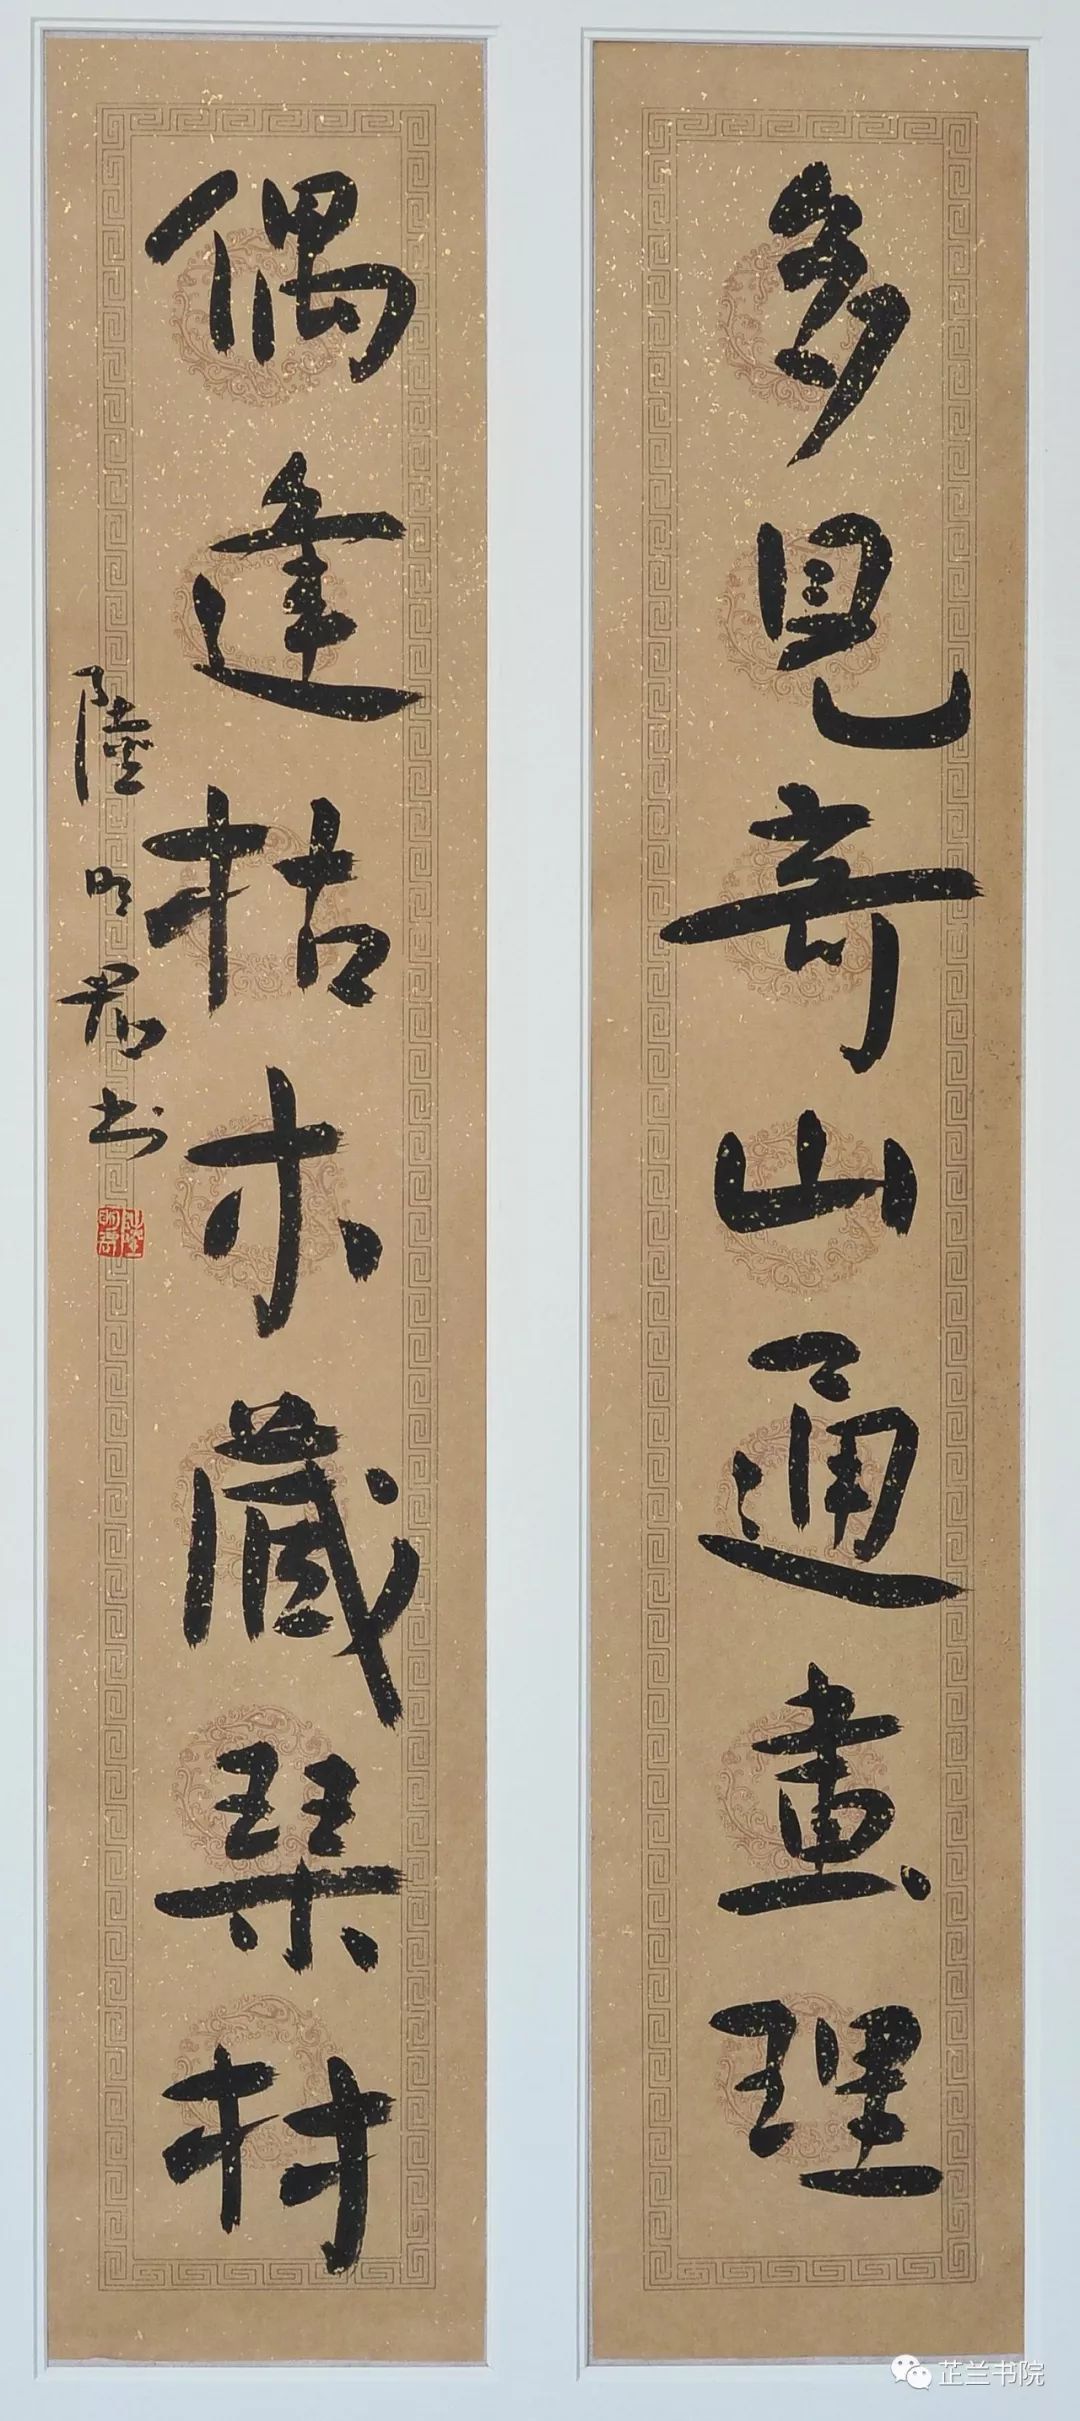 多見奇山通畫理
偶逢枯木藏琴材
陸明君书
陸明君
芷兰书院